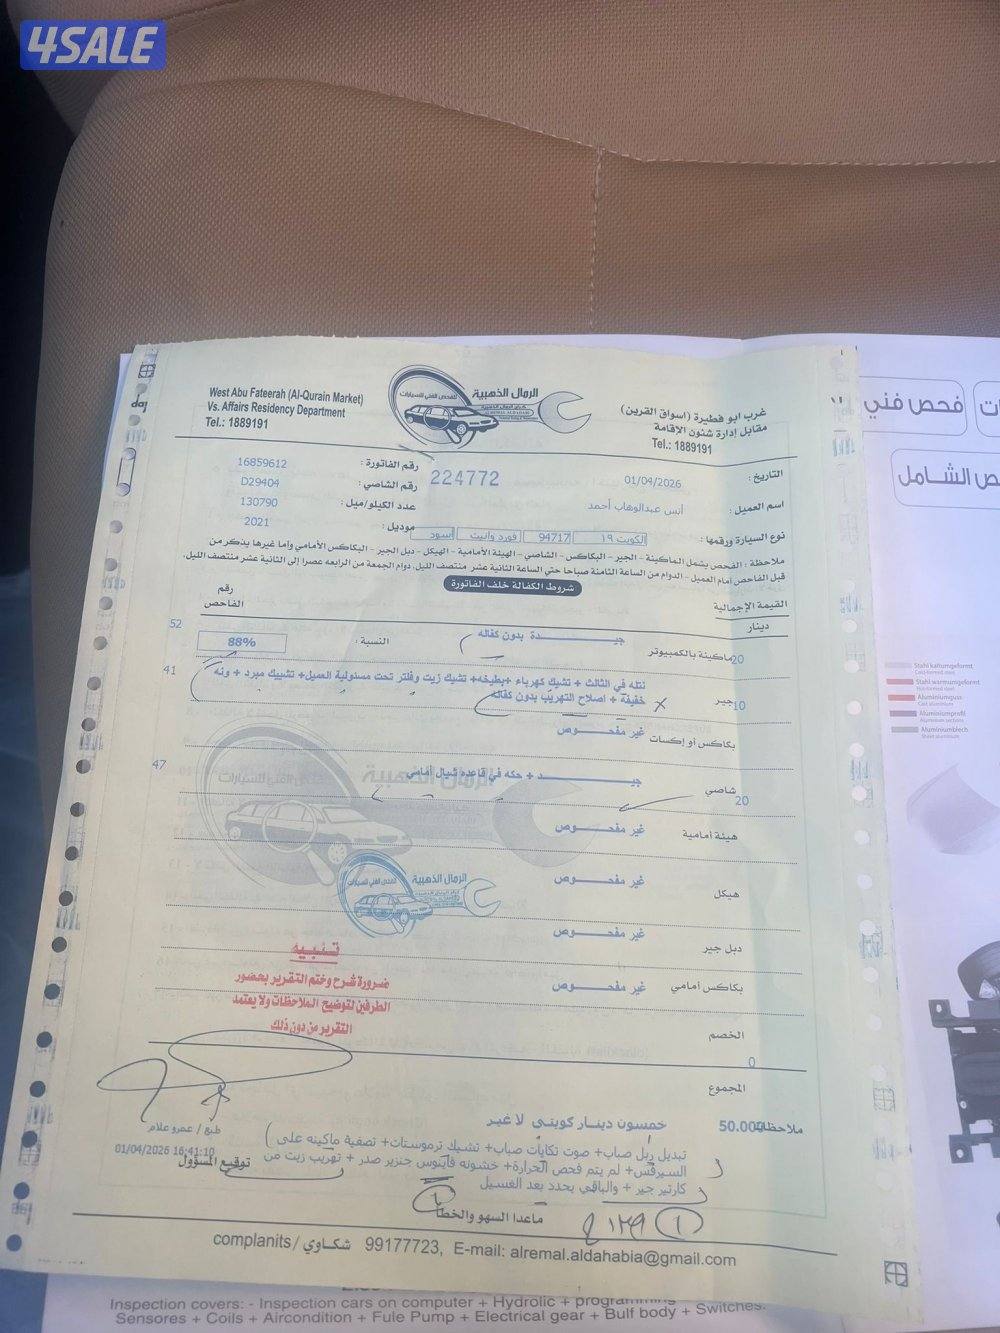 4SALE
West Abu Fateerah (Al-Qurain Market)
Vs. Affairs Residency Department
Tel.: 1889191
الرمال الذهبية
للفحص الفني للسيارات
غرب ابو فطيرة (اسواق القرين)
مقابل إدارة شئون الإقامة
Tel.: 1889191
فحص فني
ص الشامل
التاريخ : 01/04/2026
224772
رقم الفاتورة : 16859612
اسم العميل : أنس عبدالوهاب أحمد
رقم الشاصي : D29404
عدد الكيلو/ميل : 130790
نوع السيارة ورقمها : الكويت ١٩ 94717 فورد وانيت اسود
موديل : 2021
ملاحظة : الفحص يشمل الماكينة - الجير - البكاكس - الشاصي - الهيئة الأمامية - الهيكل - دبل الجير - البكاكس الأمامي وإما غيرها يذكر من
قبل الفاحص أمام العميل - الدوام من الساعة الثامنة صباحا حتي الساعة الثانية عشر منتصف الليل. دوام الجمعة من الرابعه عصرا إلى الثانية عشر منتصف الليل.
شروط الكفالة خلف الفاتورة
القيمة الإجمالية
دينار
رقم
الفاحص
20 ماكينة بالكمبيوتر جيــدة بدون كفاله النسبة : 88% 52
10 جير نتله في الثالث + تشيك كهرباء +بطيخه+ تشيك زيت وفلتر تحت مسئولية العميل+ تشييك مبرد + ونه 41
خفيفة + اصلاح التهريب بدون كفالة
بكاكس أو إكسات غير مفحــوص
20 شاصي جيــد + حكه في قاعده شيال أمامي 47
هيئة أمامية غير مفحــوص
هيكل غير مفحــوص
دبل جير غير مفحــوص
بكاكس أمامي غير مفحــوص
الرمال الذهبية
للفحص الفني للسيارات
تنبيه
ضرورة شرح وختم التقرير بحضور
الطرفين لتوضيح الملاحظات ولا يعتمد
التقرير من دون ذلك
الخصم 0
المجموع
50.000 خمسون دينار كويتي لا غير
ملاحظات
تبديل ربل صباب+ صوت تكايات صباب+ تشيك ترموستات+ تصفية ماكينه على
السيرفس+ لم يتم فحص الحرارة+ خشونه فأينوس جنزير صدر + تهريب زيت من
كارتير جير + والباقي يحدد بعد الغسيل
طبع / عمرو علام
01/04/2026 16:41:10
توقيع المسؤول
ماعدا السهو والخطأ
complanits / شكاوي 99177723, E-mail: alremal.aldahabia@gmail.com
Inspection covers: - Inspection cars on computer + Hydrolic + programming
Sensores + Coils + Aircondition + Fule Pump + Electrical gear + Bulf body + Switches.
Stahl kaltumgeformt
Stahl warmumgeformt
Aluminiumguss
Aluminiumprofil
Aluminiumblech